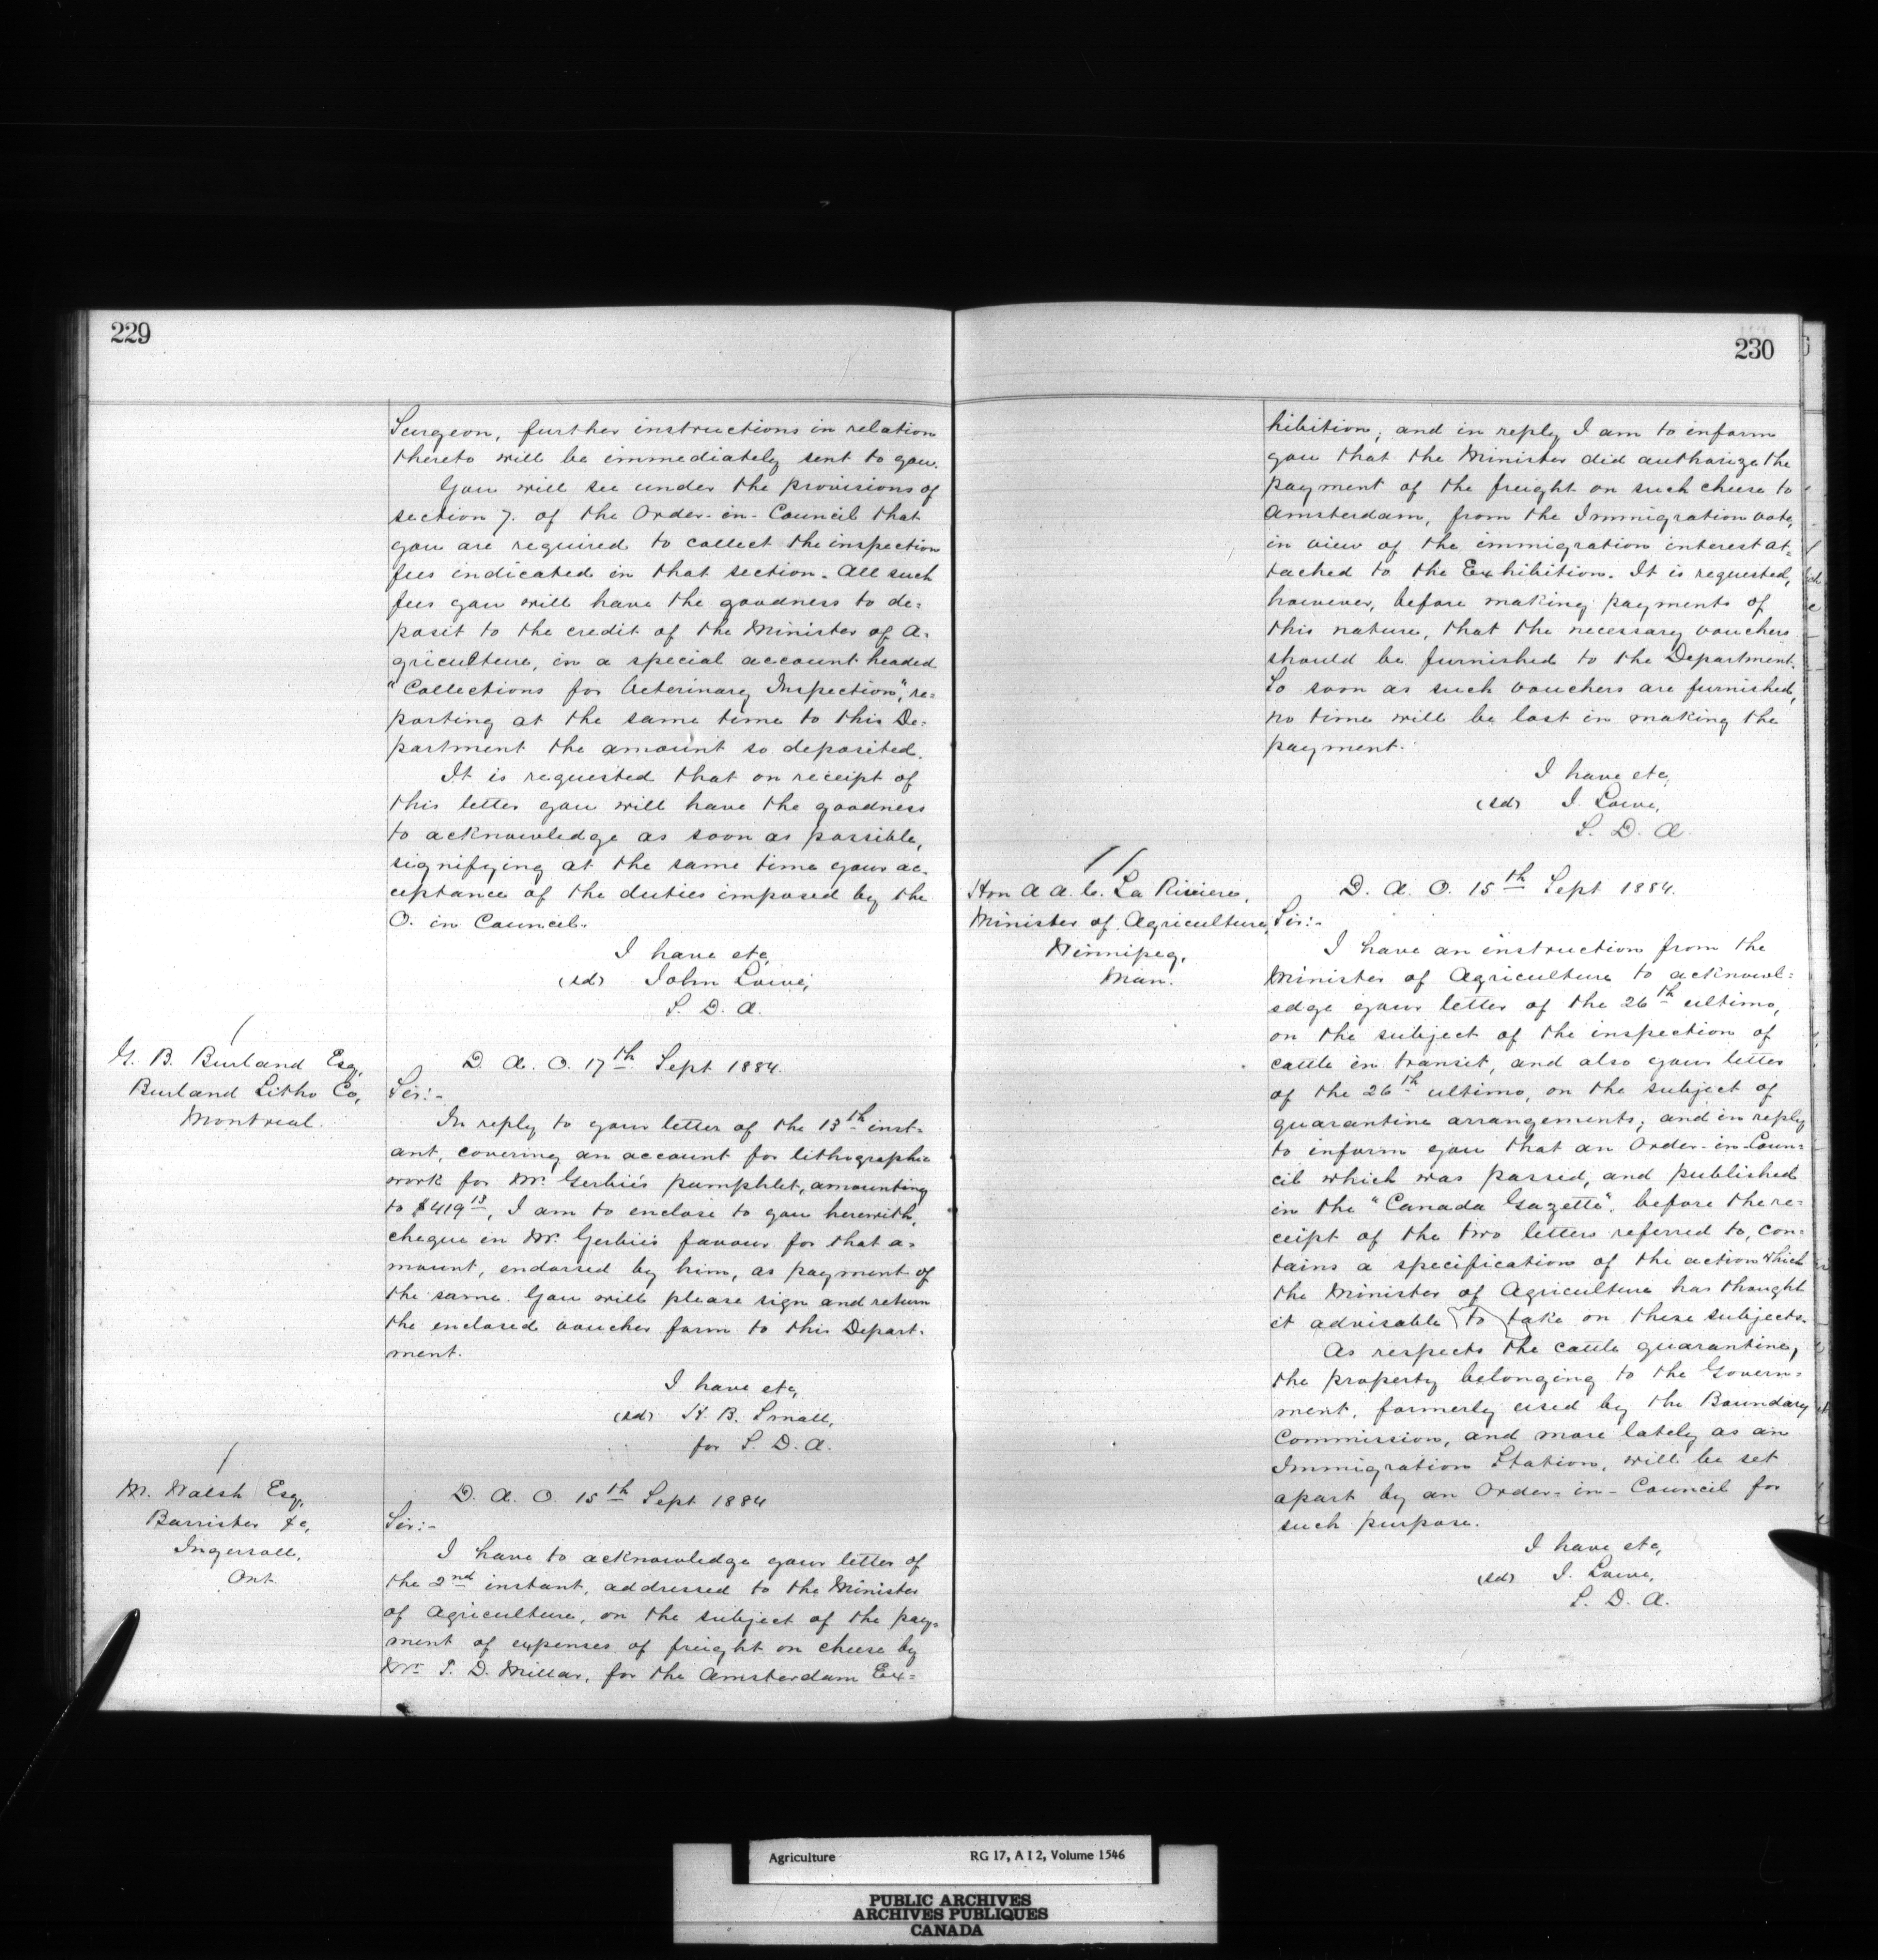 229
Surgeon, further instructions in relation
thereto will be immediately sent to you.
You will see under the provisions of
section 7. of the Order-in-Council that
you are required to collect the inspection
fees indicated in that section. All such
fees you will have the goodness to de=
posit to the credit of the Minister of A=
griculture, in a special account headed
"Collections for Veterinary Inspection", re=
porting at the same time to this De=
partment the amount so deposited.
It is requested that on receipt of
this letter you will have the goodness
to acknowledge as soon as possible,
signifying at the same time your ac=
ceptance of the duties imposed by the
O. in Council.
I have etc,
(sd) John Lowe,
S. D. A.
G. B. Burland Esq,
Burland Litho Co,
Montreal.
D. A. O. 17th Sept 1884.
Sir:-
In reply to your letter of the 13th inst=
ant, covering an account for lithographic
work for Mr. Gerbié's pamphlet, amounting
to $419 13, I am to enclose to you herewith,
cheque in Mr. Gerbié's favour for that a=
mount, endorsed by him, as payment of
the same. You will please sign and return
the enclosed voucher form to this Depart=
ment.
I have etc,
(sd) H. B. Small,
for S. D. A.
M. Walsh Esq,
Barrister &c,
Ingersoll,
Ont.
D. A. O. 15th Sept 1884
Sir:-
I have to acknowledge your letter of
the 2nd instant, addressed to the Minister
of Agriculture, on the subject of the pay=
ment of expenses of freight on cheese by
Mr. T. D. Millar, for the Amsterdam Ex=
230
hibition; and in reply I am to inform
you that the Minister did authorize the
payment of the freight on such cheese to
Amsterdam, from the Immigration vote,
in view of the immigration interest at=
tached to the Exhibition. It is requested,
however, before making payments of
this nature, that the necessary vouchers
should be furnished to the Department.
So soon as such vouchers are furnished,
no time will be lost in making the
payment.
I have etc,
(sd) J. Lowe,
S. D. A.
Hon A. A. C. La Riviere,
Minister of Agriculture,
Winnipeg,
Man.
D. A. O. 15th Sept 1884.
Sir:-
I have an instruction from the
Minister of Agriculture to acknowl=
edge your letter of the 26th ultimo,
on the subject of the inspection of
cattle in transit, and also your letter
of the 26th ultimo, on the subject of
quarantine arrangements; and in reply
to inform you that an Order-in-Coun=
cil which was passed, and published
in the "Canada Gazette", before the re=
ceipt of the two letters referred to, con=
tains a specification of the action which
the Minister of Agriculture has thought
it advisable to take on these subjects.
As respects the cattle quarantine,
the property belonging to the Govern=
ment, formerly used by the Boundary
Commission, and more lately as an
Immigration Station, will be set
apart by an Order-in-Council for
such purpose.
I have etc,
(sd) J. Lowe,
S. D. A.
Agriculture RG 17, A I 2, Volume 1546
PUBLIC ARCHIVES
ARCHIVES PUBLIQUES
CANADA